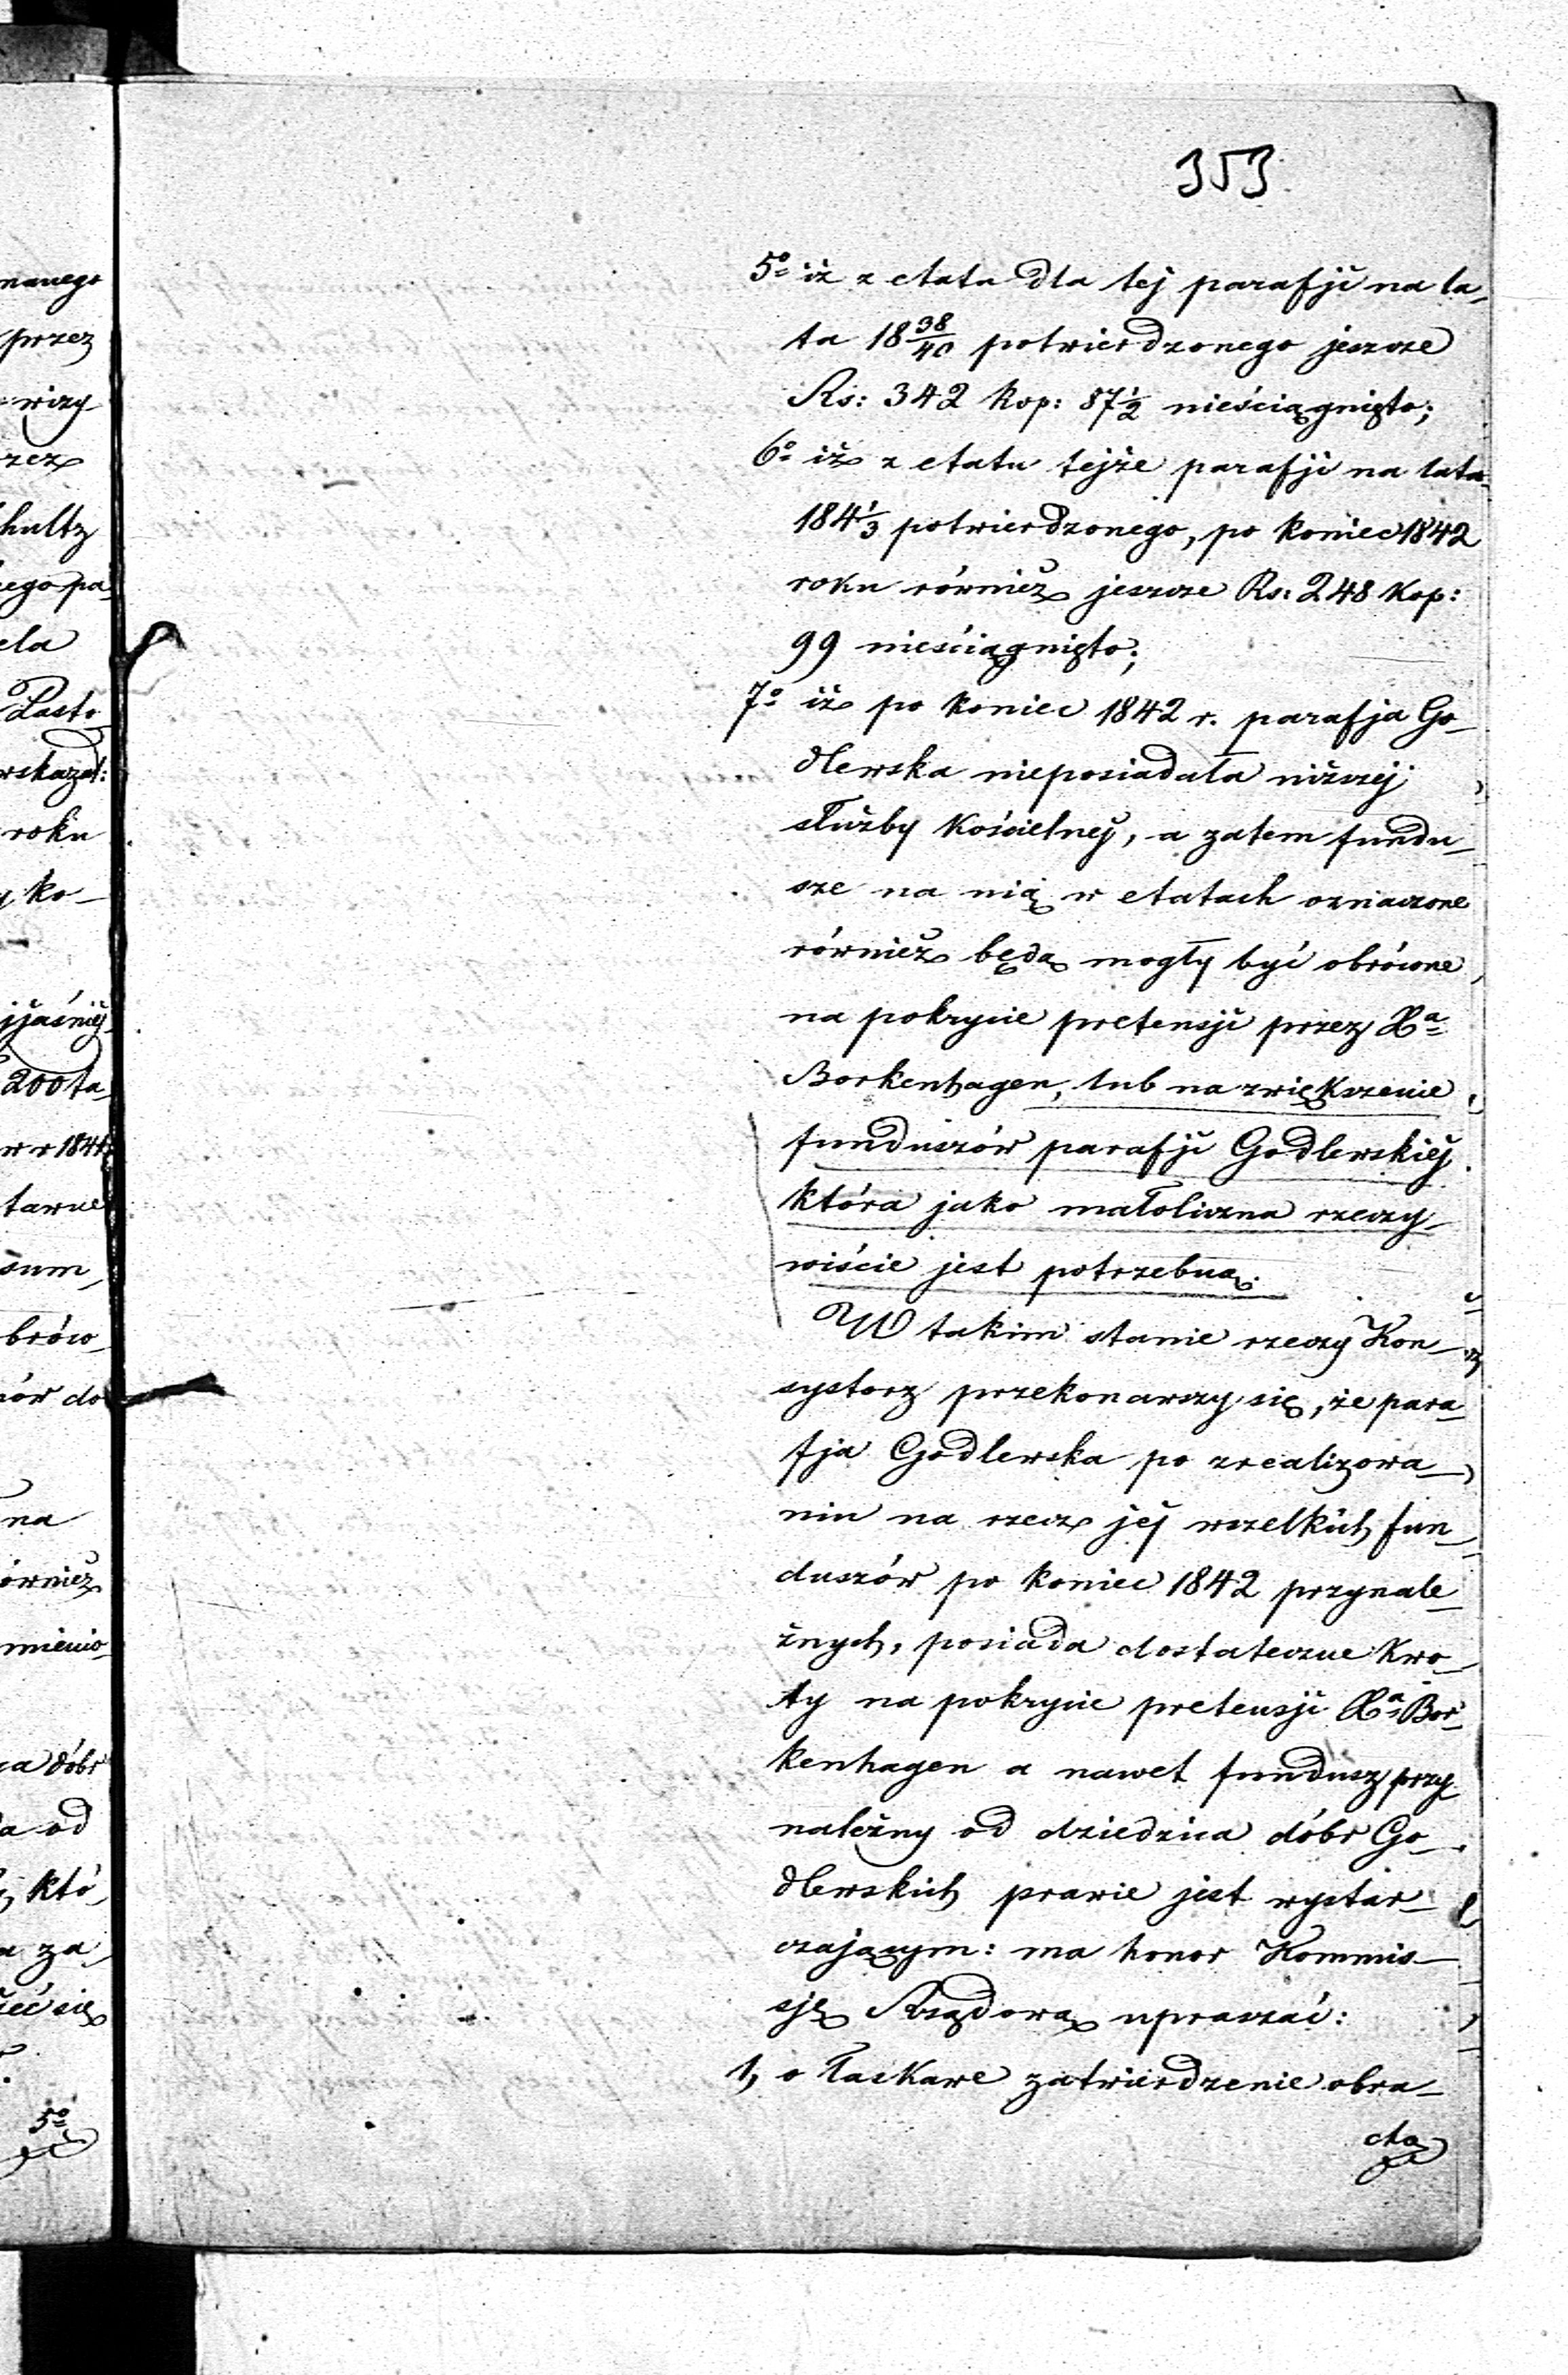 353
5º iż z etatu dla tej parafji na la-
ta 18 38/40 potwierdzonego jeszcze
Rs: 342 kop: 87½ nieściągnięto;
6º iż z etatu tejże parafji na lata
184 1/3 potwierdzonego, po koniec 1842
roku również jeszcze Rs: 248 kop:
99 nieściągnięto;
7º iż po koniec 1842 r. parafja Go-
dlewska nieposiadała niższej
służby kościelnej, a zatem fundu-
sze na nią w etatach oznaczone
również będą mogły być obrócone
na pokrycie pretensji przez Xa
Borkenhagen, lub na zwiększenie
funduszów parafji Godlewskiej
która jako małoliczna rzeczy-
wiście jest potrzebną.
W takim stanie rzeczy Kon-
systorz przekonawszy się, że para-
fja Godlewska po zrealizowa-
niu na rzecz jej wszelkich fun-
duszów po koniec 1842 przynale-
żnych, posiada dostateczne kwo-
ty na pokrycie pretensji Xa Bor-
kenhagen a nawet fundusz przy
należny od dziedzica dóbr Go-
dlewskich prawie jest wystar-
czającym: ma honor Kommis-
sję Rządową upraszać:
1, o łaskawe zatwierdzenie obra-
cho
nanego
przez
wizy
rzez
hultz
ego pa
ela
Pasto-
wskazał:
roku
ko-
jjaśniej
200 ta
w r 1841
tarne
sum,
brów-
ów do
na
ównież
mienio-
a dóbr
a od
któ-
za
ieć się
5º